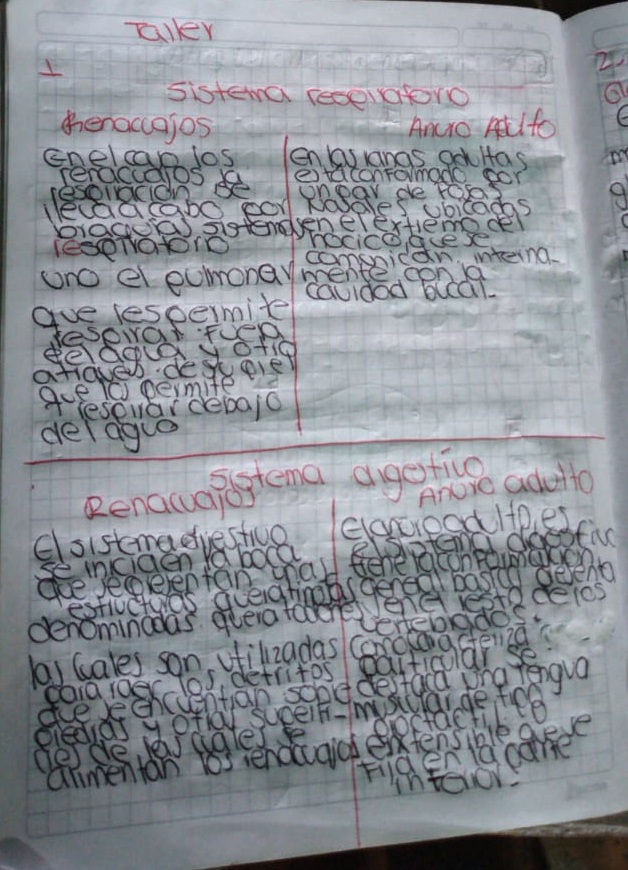 Taller
1
Sistema respiratorio
Renacuajos
en el cao los
renacuajos la
respiración se
lleca a cabo por
braquias sistema
respiratorio
uno el pulmonar
que les permite
respirar fuera
del agua y otro
atraves de su piel
que lo permite
respirar debajo
del agua
Anuro Adulto
en las ranas adultas
esta conformado por
un par de fosas
nasales ubicadas
en el extremo del
hocico que se
comonican interna-
mente con la
cavidad bucal.
Sistema digestivo
Renacuajos
el sistema digestivo
se inicia en la boca
que se presentan unas
estructuras queratinadas
denominadas querátadontes
las cuales son utilizadas
para raer los detritos
que se encuentran sobre
piedras y otras superfi-
cies de las cuales se
alimentan los renacuajos
Anuro adulto
el anuro adulto es
el sistema digestivo
tiene la conformación
general basica
en el resto de los
vertebrados
como caracteriza
particular se
destaca una lengua
muscular de tipo
protactil o
extensible que se
fija en la parte
inferior.
2.